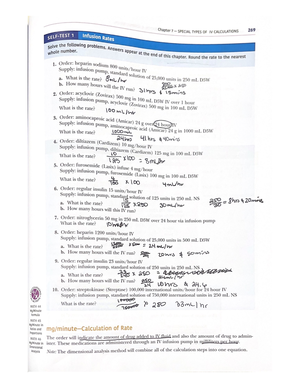 Chapter 7 – SPECIAL TYPES OF IV CALCULATIONS 269
SELF-TEST 1 Infusion Rates
Solve the following problems. Answers appear at the end of this chapter. Round the rate to the nearest
whole number.
1. Order: heparin sodium 800 units/hour IV
Supply: infusion pump, standard solution of 25,000 units in 250 mL D5W
a. What is the rate? 8mL/hr
b. How many hours will the IV run?
2. Order: acyclovir (Zovirax) 500 mg in 100 mL D5W IV over 1 hour
Supply: infusion pump, acyclovir (Zovirax) 500 mg in 100 mL D5W
What is the rate? 100 mL/hr
3. Order: aminocaproic acid (Amicar) 24 g over 24 hours IV
Supply: infusion pump, aminocaproic acid (Amicar) 24 g in 1000 mL D5W
What is the rate?
4. Order: diltiazem (Cardizem) 10 mg/hour IV
Supply: infusion pump, diltiazem (Cardizem) 125 mg in 100 mL D5W
What is the rate? × 100 = 8mL/hr
5. Order: furosemide (Lasix) infuse 4 mg/hour
Supply: infusion pump, furosemide (Lasix) 100 mg in 100 mL D5W
What is the rate? × 100 4mL/hr
6. Order: regular insulin 15 units/hour IV
Supply: infusion pump, standard solution of 125 units in 250 mL NS
a. What is the rate? × 250 30mL/hr
b. How many hours will this IV run?
7. Order: nitroglycerin 50 mg in 250 mL D5W over 24 hour via infusion pump
What is the rate?
8. Order: heparin 1200 units/hour IV
Supply: infusion pump, standard solution of 25,000 units in 500 mL D5W
a. What is the rate? = 24mL/hr
b. How many hours will the IV run?
9. Order: regular insulin 23 units/hour IV
Supply: infusion pump, standard solution of 250 units in 250 mL NS
a. What is the rate?
b. How many hours will the IV run?
10. Order: streptokinase (Streptase) 100,000 international units/hour for 24 hour IV
Supply: infusion pump, standard solution of 750,000 international units in 250 mL NS
What is the rate? 33mL/hr
mg/minute—Calculation of Rate
The order will indicate the amount of drug added to IV fluid and also the amount of drug to admin-
ister. These medications are administered through an IV infusion pump in milliliters per hour.
Note: The dimensional analysis method will combine all of the calculation steps into one equation.